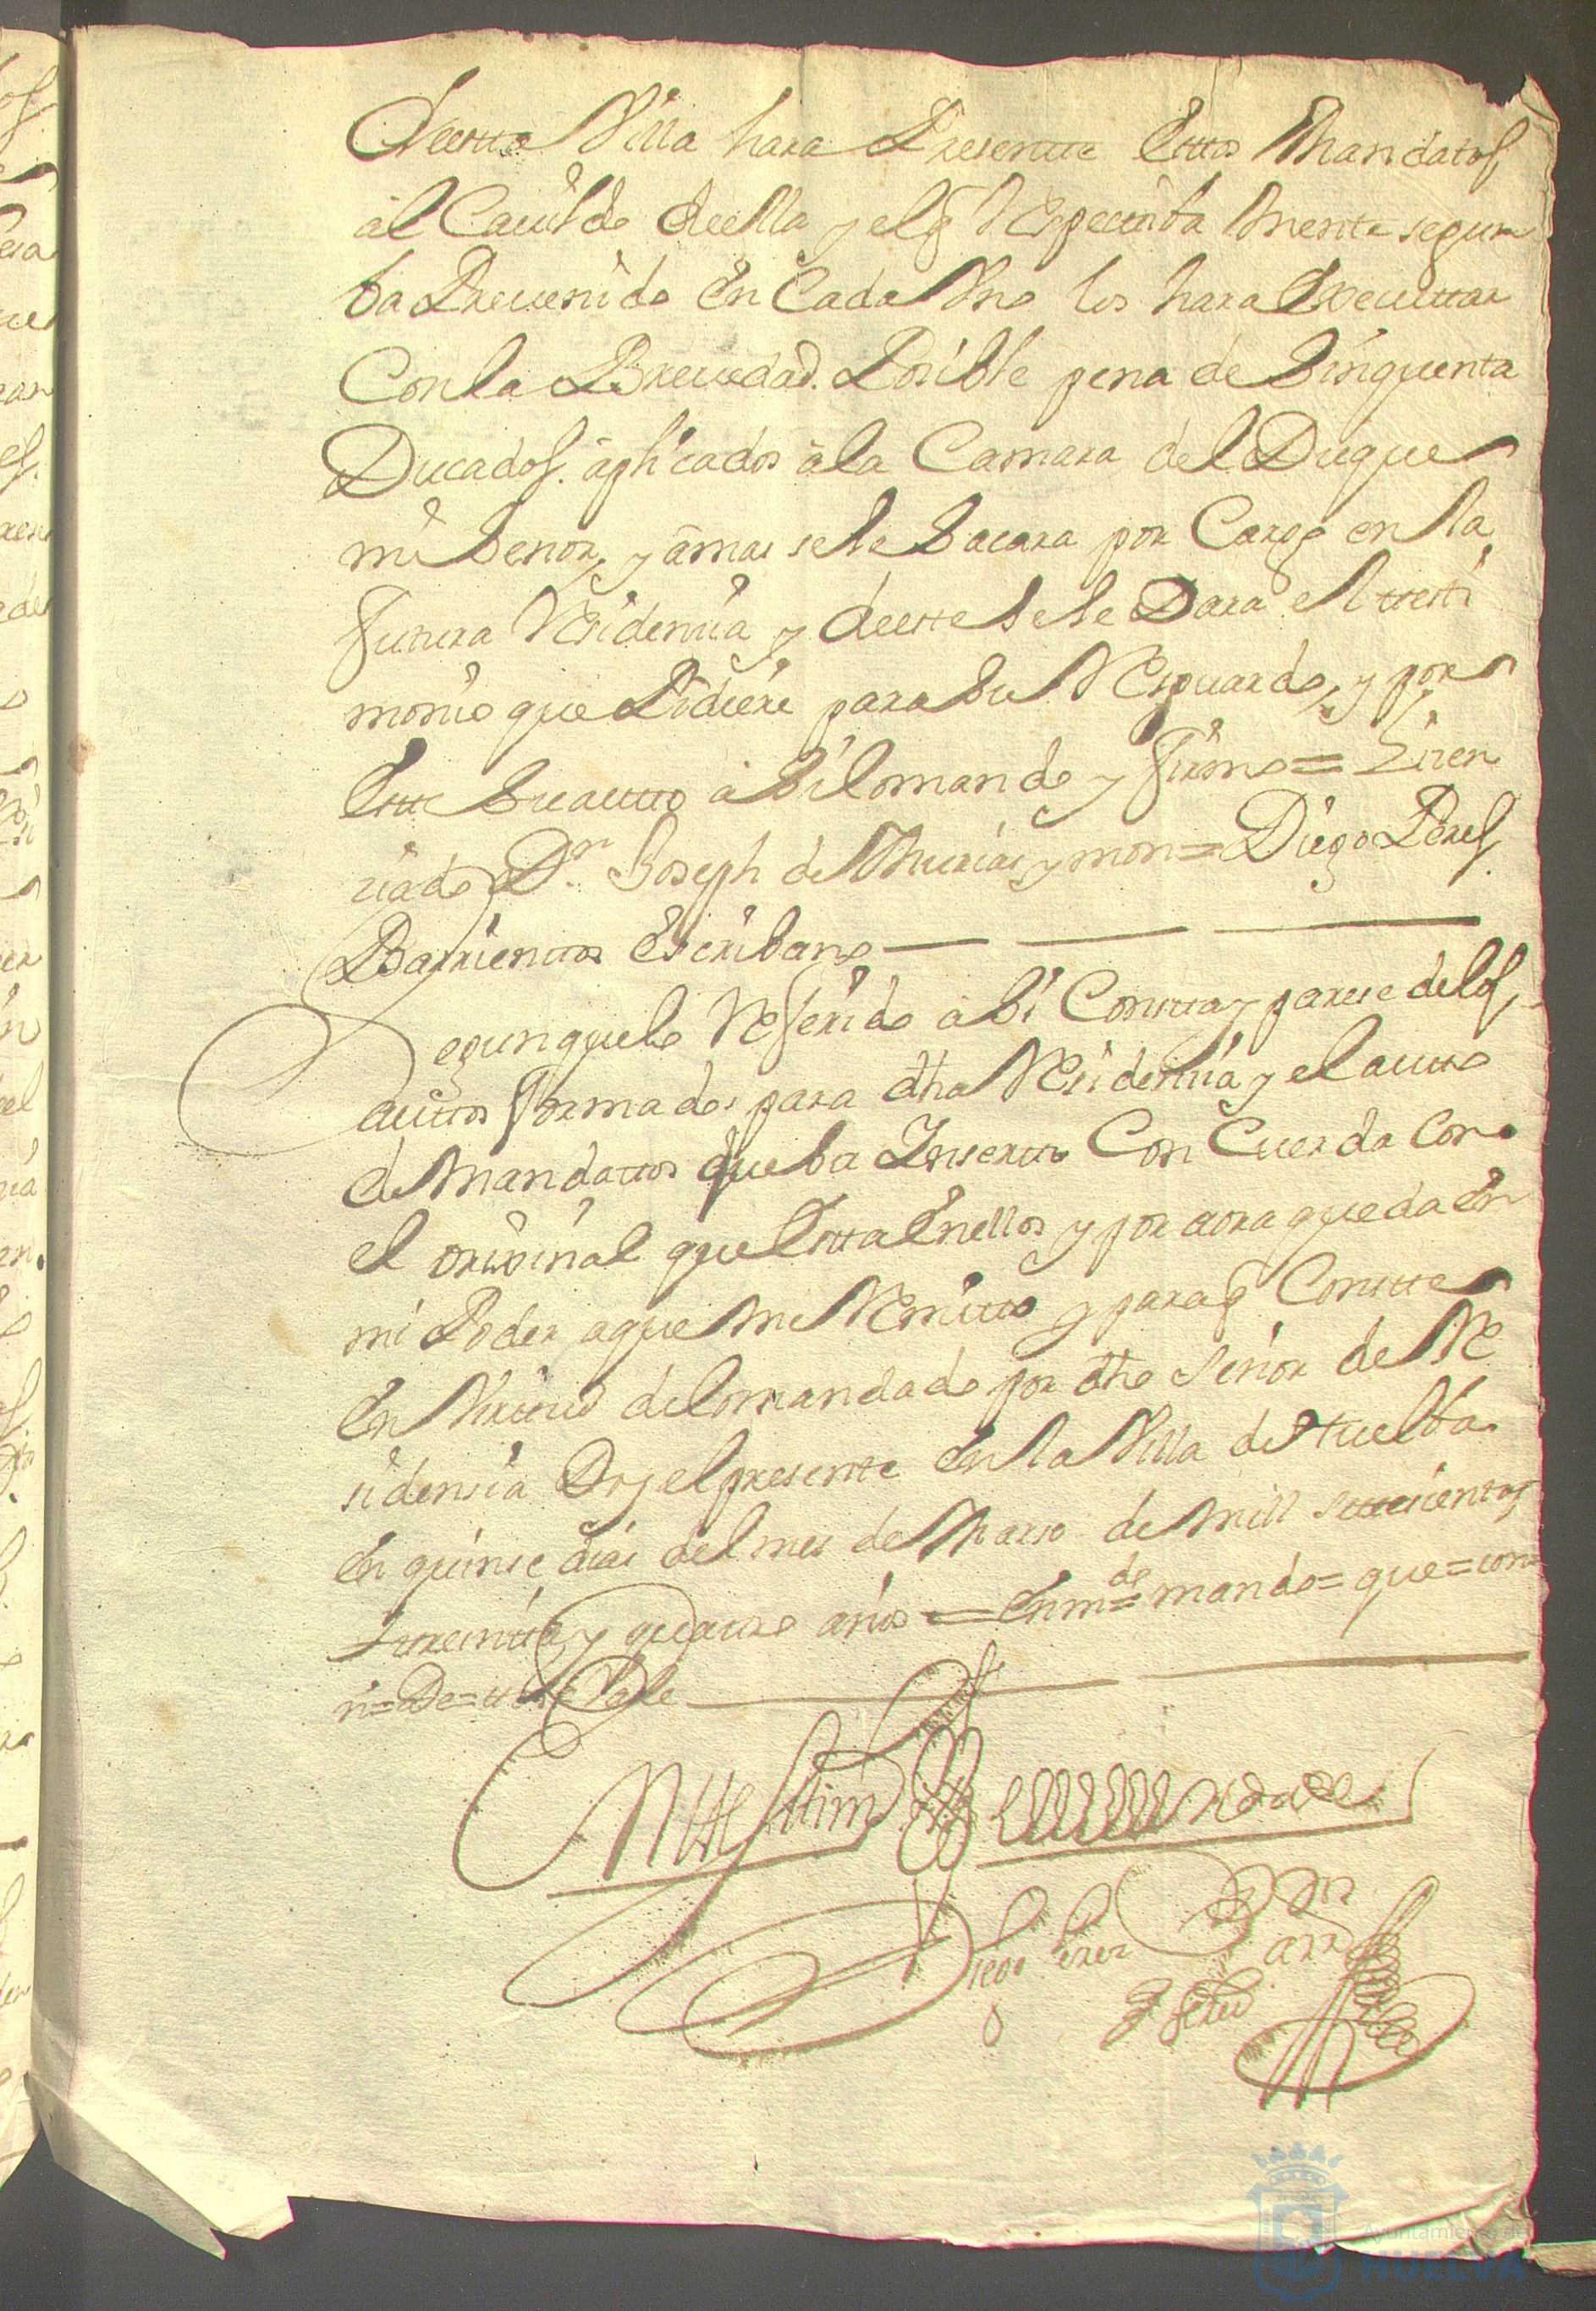 Deesta Villa hara Presentte Esttos Mandatos
al Cauildo deella y el q Respectiba Mente segun
ba Preuenido En Cada Vno los hara Executtar
Con la Breuedad. Posible pena de Sinquenta
Ducados. aplicados a la Camara del Duque
mi Senor, y amas se le Sacara por Cargo en la
futura Residencia y deeste Se le Dara el ttesti
monio que Pidiere para Su Resguardo, y por
Estte Su autto a Si lo mando y firmo = Lizen
ciado Dn. Joseph de Murias y mon = Diego Peres
Barrienttos Escribano
Segun que lo Referido a Si Constta y parese de los
auttos formados para dha Residencia y el autto
de Mandattos que ba Inserto Con Cuerda Con
el original que Estta En ellos y por aora queda En
mi Poder a que me Remitto y para q Constte
En Virttud de lo mandado por dho Señor de Re
sidensia Doy el presente En la Villa de Huelba
En quinse dias del mes de Marso de mill settesientos
ttreintta y quatro años = Enmdo = mando = que = con =
n = De = Vale
En ttestimo de Verdad
Diego Peres Barrtos
Escriu
Ayuntamiento de
HUELVA